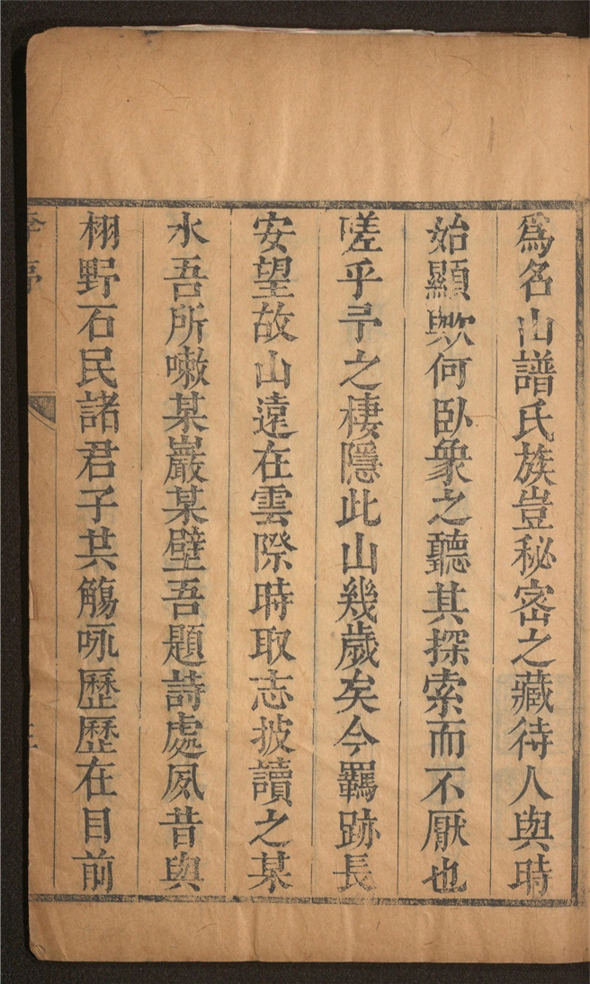 爲名山譜氏族豈秘密之藏待人與時
始顯歟何臥衆之聽其探索而不厭也
嗟乎予之棲隱此山幾歲矣今羈跡長
安望故山遠在雲際時取志披讀之某
水吾所嗽某巖某壁吾題詩處夙昔與
栩野石民諸君子共觴咏歷歷在目前